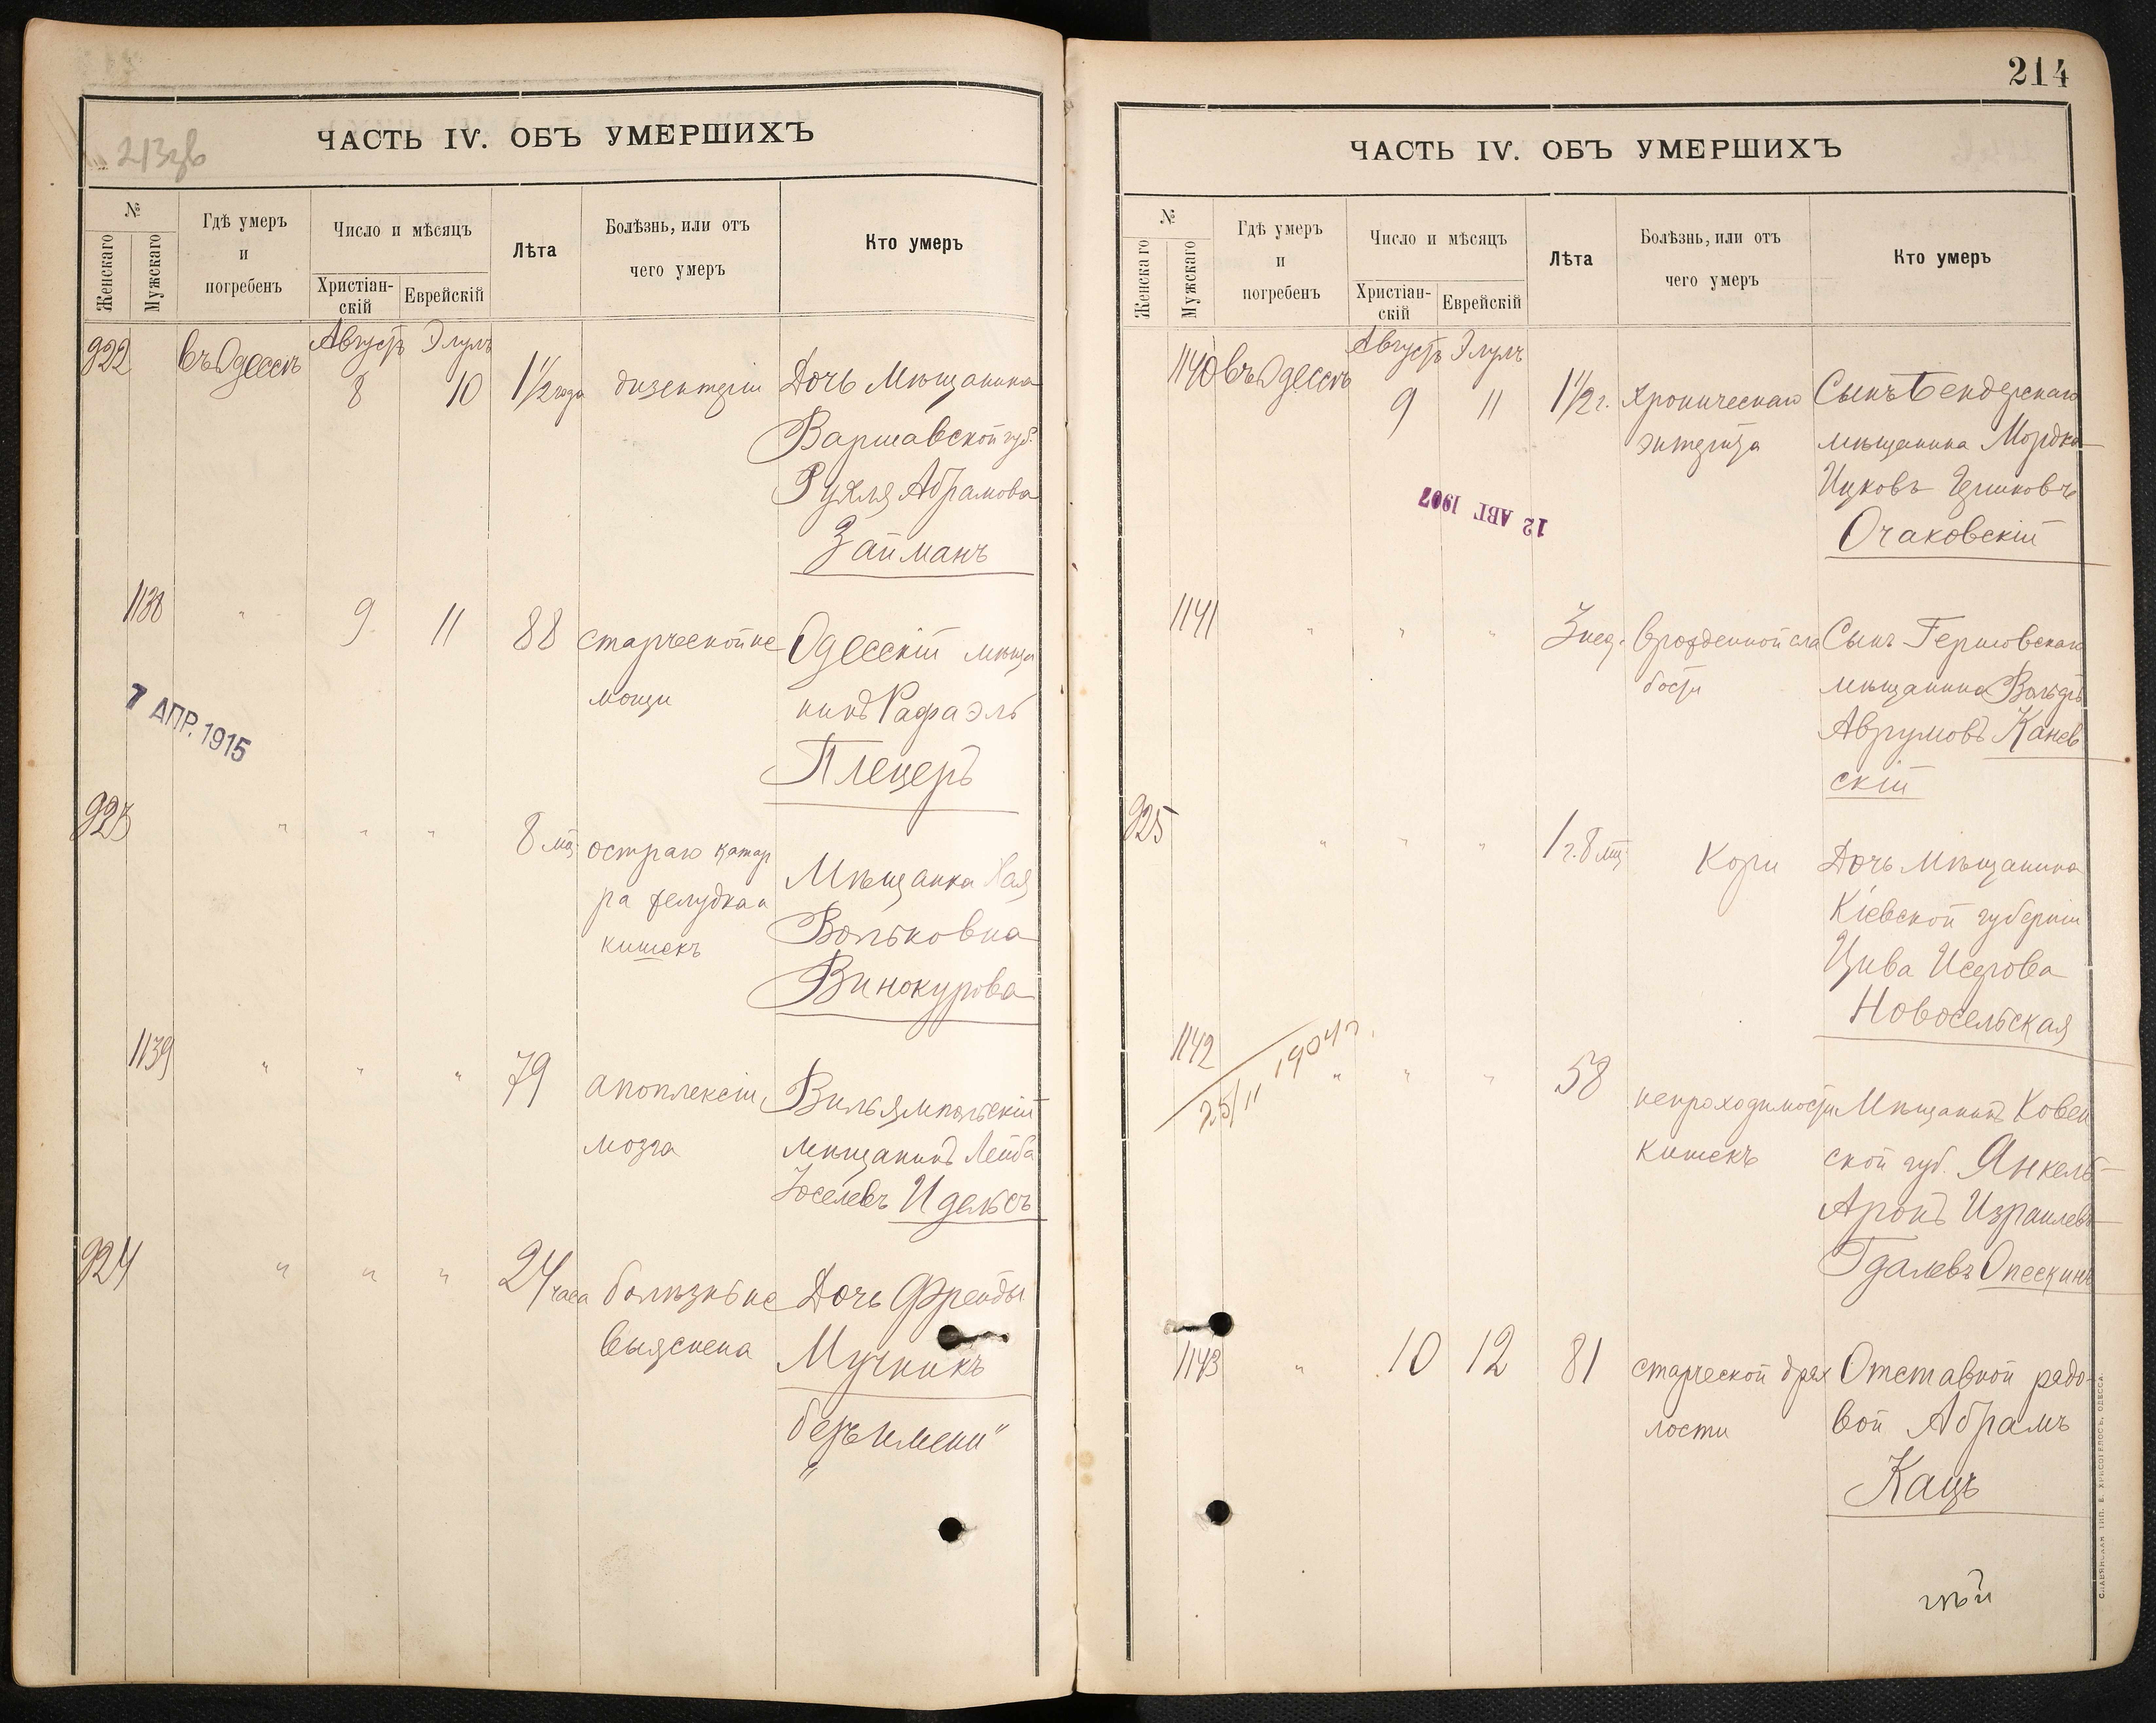 213зв
ЧАСТЬ IV. ОБЪ УМЕРШИХЪ
№
Женскаго
Мужскаго
Гдѣ умеръ
и
погребенъ
Число и мѣсяцъ
Христіан-
скій
Еврейскій
Лѣта
Болѣзнь, или отъ
чего умеръ
Кто умеръ
922 въ Одессѣ Августъ 8 Элулъ 10 1½ года дизентеріи Дочь Мѣщанина
Варшавской губ.
Рухля Абрамова
Займанъ
1138 " 9 11 88 старческой не
мощи
Одесскій мѣща
нинъ Рафаэль
Плецеръ
7 АПР. 1915
923 " " " 8 мц. остраго катар
ра желудка и
кишекъ
Мѣщанка Хая
Вольковна
Винокурова
1139 " " " 79 апоплексіи
мозга
Вильямпольскій
мѣщанинъ Лейба
Іоселевъ Идельсъ
924 " " " 24 часа болѣзнь не
выяснена
Дочь Фрейды
Мучникъ
"безъ имени"
214
ЧАСТЬ IV. ОБЪ УМЕРШИХЪ
№
Женскаго
Мужскаго
Гдѣ умеръ
и
погребенъ
Число и мѣсяцъ
Христіан-
скій
Еврейскій
Лѣта
Болѣзнь, или отъ
чего умеръ
Кто умеръ
1140 въ Одессѣ Августъ 9 Элулъ 11 1½ г. хроническаго
энтерита
Сынъ Бендерскаго
мѣщанина Мордко
Ицковъ
Очаковскій
12 АВГ 1907
1141 " " " 3 нед. врожденной сла
бости
Сынъ
мѣщанина Вольфъ
Аврумовъ Канев
скій
925 " " " 1 г. 8 мц. Кори Дочь Мѣщанина
Кіевской губерніи
Цива Исерова
Новосельская
1142 25/11 " " " 58 непроходимости
кишекъ
Мѣщанинъ Ковен
ской губ. Янкель
Аронъ Израилевъ
Гдалевъ Опескинъ
1143 " 10 12 81 старческой дрях
лости
Отставной рядо-
вой Абрамъ
Кацъ
СЛАВЯНСКАЯ ТИП. Е. ХРИСОГЕЛОСЪ, ОДЕССА.